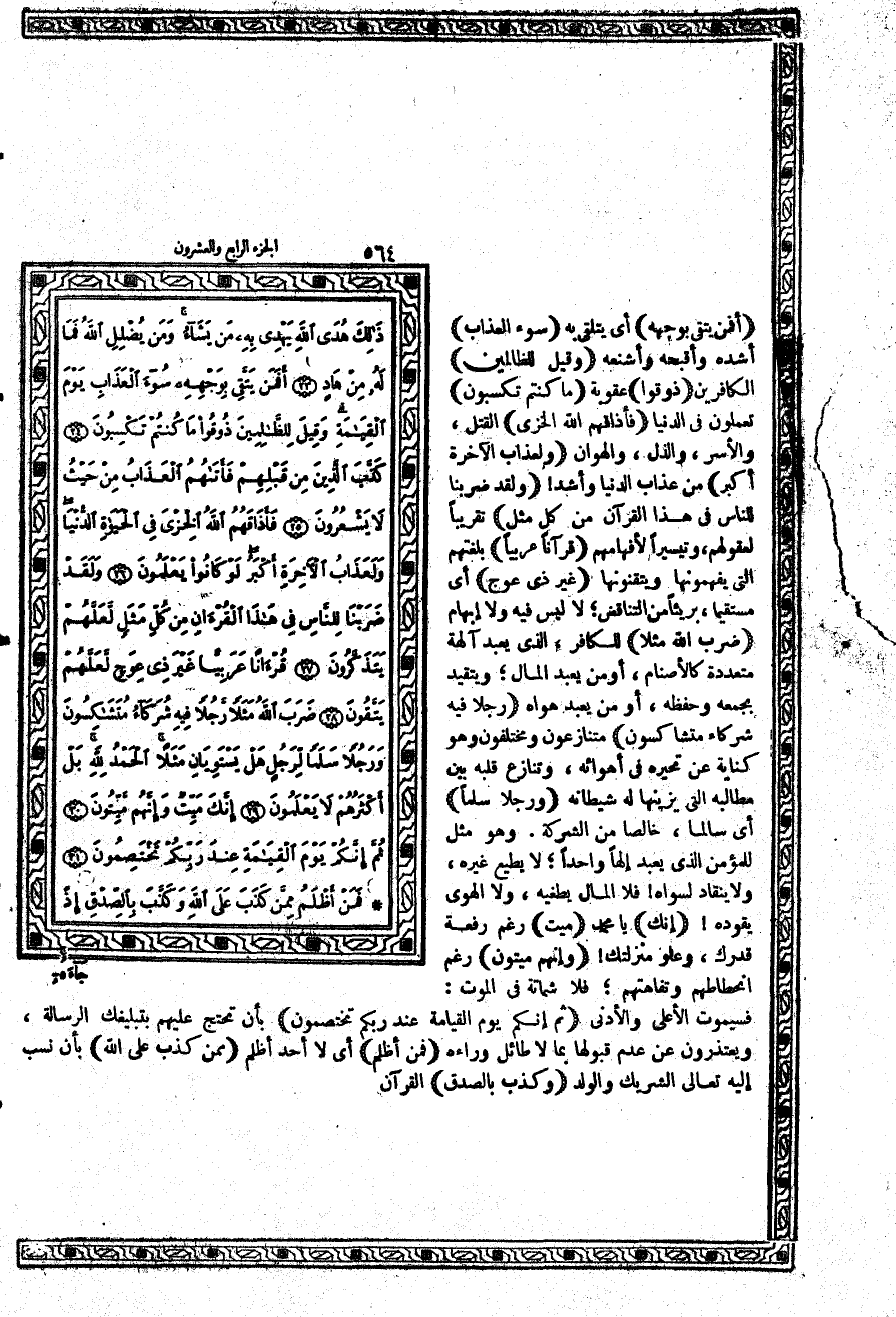 الجزء الرابع والعشرون
٥٦٤
ذَٰلِكَ هُدَى ٱللَّهِ يَهْدِى بِهِۦ مَن يَشَآءُ ۚ وَمَن يُضْلِلِ ٱللَّهُ فَمَا
لَهُۥ مِنْ هَادٍ ﴿٢٣﴾ أَفَمَن يَتَّقِى بِوَجْهِهِۦ سُوٓءَ ٱلْعَذَابِ يَوْمَ
ٱلْقِيَٰمَةِ ۚ وَقِيلَ لِلظَّٰلِمِينَ ذُوقُوا۟ مَا كُنتُمْ تَكْسِبُونَ ﴿٢٤﴾
كَذَّبَ ٱلَّذِينَ مِن قَبْلِهِمْ فَأَتَىٰهُمُ ٱلْعَذَابُ مِنْ حَيْثُ
لَا يَشْعُرُونَ ﴿٢٥﴾ فَأَذَاقَهُمُ ٱللَّهُ ٱلْخِزْىَ فِى ٱلْحَيَوٰةِ ٱلدُّنْيَا ۖ
وَلَعَذَابُ ٱلْءَاخِرَةِ أَكْبَرُ ۚ لَوْ كَانُوا۟ يَعْلَمُونَ ﴿٢٦﴾ وَلَقَدْ
ضَرَبْنَا لِلنَّاسِ فِى هَٰذَا ٱلْقُرْءَانِ مِن كُلِّ مَثَلٍ لَّعَلَّهُمْ
يَتَذَكَّرُونَ ﴿٢٧﴾ قُرْءَانًا عَرَبِيًّا غَيْرَ ذِى عِوَجٍ لَّعَلَّهُمْ
يَتَّقُونَ ﴿٢٨﴾ ضَرَبَ ٱللَّهُ مَثَلًا رَّجُلًا فِيهِ شُرَكَآءُ مُتَشَٰكِسُونَ
وَرَجُلًا سَلَمًا لِّرَجُلٍ هَلْ يَسْتَوِيَانِ مَثَلًا ۚ ٱلْحَمْدُ لِلَّهِ ۚ بَلْ
أَكْثَرُهُمْ لَا يَعْلَمُونَ ﴿٢٩﴾ إِنَّكَ مَيِّتٌ وَإِنَّهُم مَّيِّتُونَ ﴿٣٠﴾
ثُمَّ إِنَّكُمْ يَوْمَ ٱلْقِيَٰمَةِ عِندَ رَبِّكُمْ تَخْتَصِمُونَ ﴿٣١﴾
* فَمَنْ أَظْلَمُ مِمَّن كَذَبَ عَلَى ٱللَّهِ وَكَذَّبَ بِٱلصِّدْقِ إِذْ
جَآءَهُۥٓ
(أفمن يتقى بوجهه) أى يتلقى به (سوء العذاب)
أشده وأقبحه وأشنعه (وقيل للظالمين)
الكافرين (ذوقوا) عقوبة (ما كنتم تكسبون)
تعملون فى الدنيا (فأذاقهم الله الخزى) القتل ،
والأسر ، والذل ، والهوان (ولعذاب الآخرة
أكبر) من عذاب الدنيا وأشد! (ولقد ضربنا
للناس فى هـذا القرآن من كل مثل) تقريباً
لعقولهم، وتيسيراً لأفهامهم (قرآناً عربياً) بلغتهم
التى يفهمونها ويتقنونها (غير ذى عوج) أى
مستقيما ، بريئاً من التناقض؛ لا لبس فيه ولا إبهام
(ضرب الله مثلا) للـكافر ، الذى يعبد آلهة
متعددة كالأصنام ، أو من يعبد المـال ؛ ويتقيد
بجمعه وحفظه ، أو من يعبد هواه (رجلا فيه
شركاء متشاكسون) متنازعون ومختلفون وهو
كناية عن تحيره فى أهوائه ، وتنازع قلبه بين
مطالبه التى يزينها له شيطانه (ورجلا سلماً)
أى سالمـا ، خالصا من الشركة . وهو مثل
للمؤمن الذى يعبد إلهاً واحداً ؛ لا يطيع غيره ،
ولا ينقاد لسواه! فلا المـال يطغيه ، ولا الهوى
يقوده ! (إنك) يا محمد (ميت) رغم رفعـة
قدرك ، وعلو منزلتك! (وإنهم ميتون) رغم
انحطاطهم وتفاهتهم ؛ فلا شماتة فى الموت :
فسيموت الأعلى والأدنى (ثم إنـكم يوم القيامة عند ربكم تختصمون) بأن تحتج عليهم بتبليغك الرسالة ،
ويعتذرون عن عدم قبولها بما لا طائل وراءه (فمن أظلم) أى لا أحد أظلم (ممن كذب على الله) بأن نسب
إليه تعـالى الشريك والولد (وكذب بالصدق) القرآن